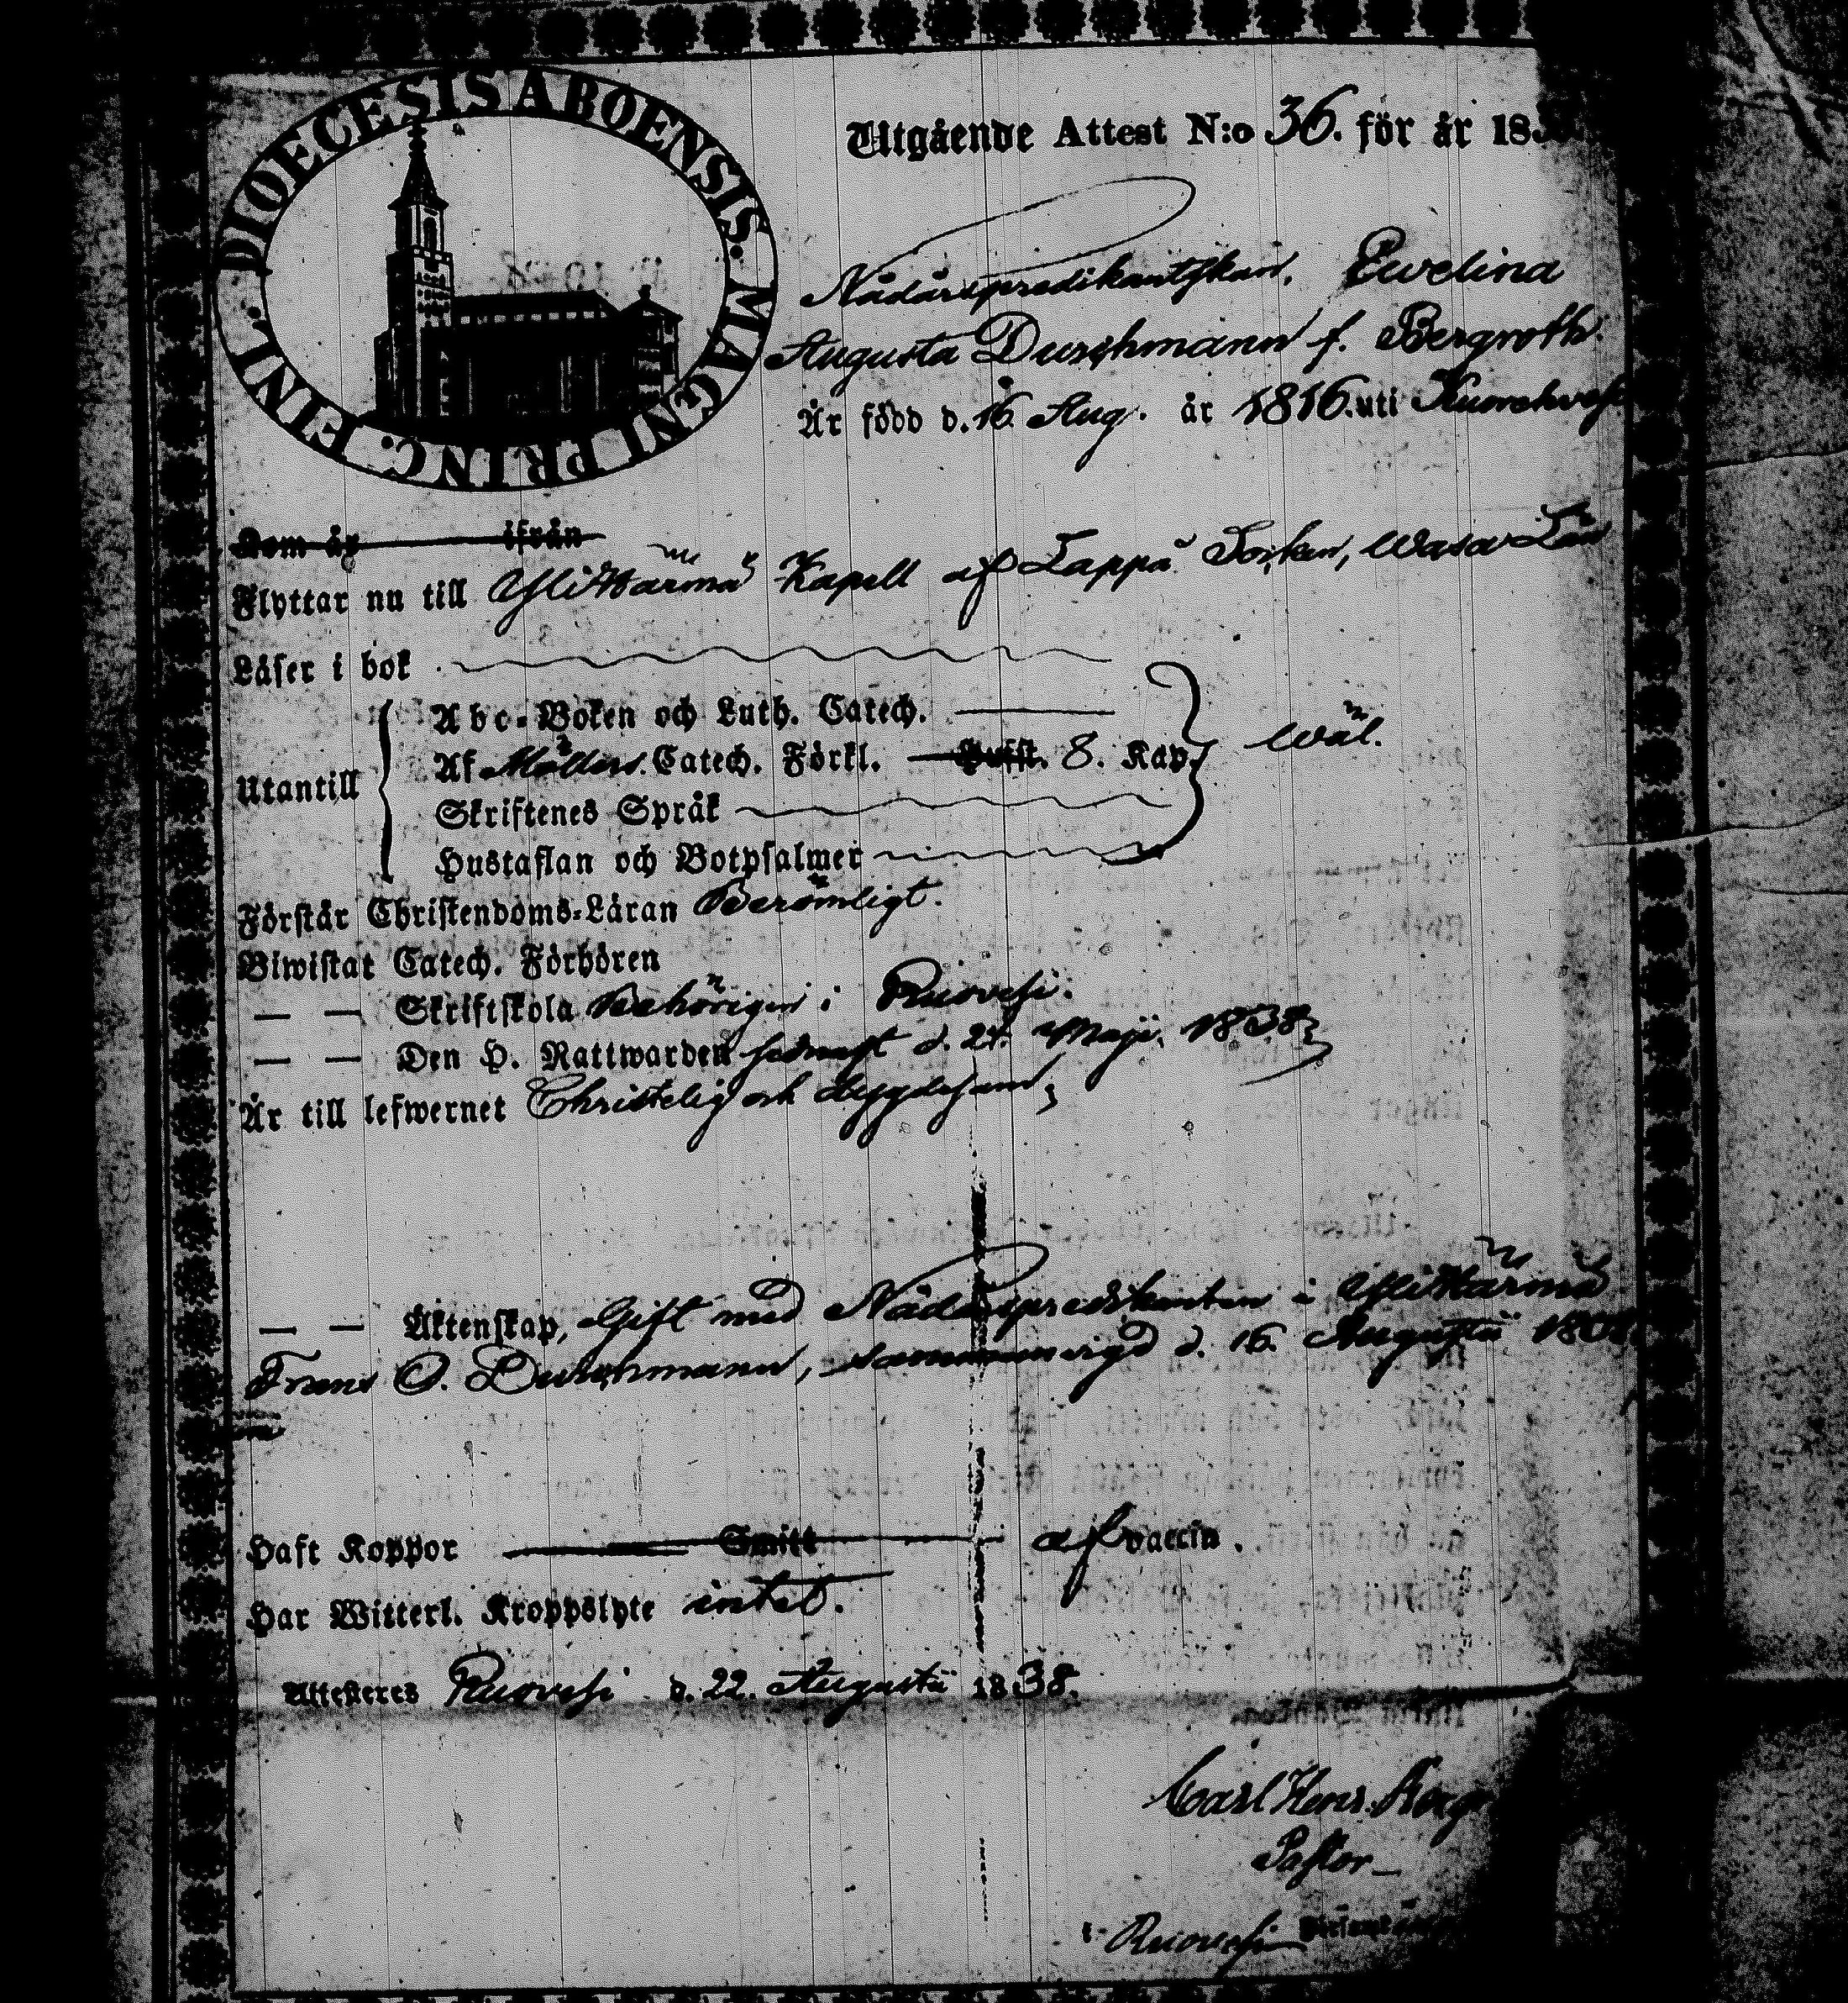 DIOECESIS ABOENSIS. MAGNI PRINC. FINL.
Utgående Attest N:o 36. för år 183
Nådårspredikantskan, Ewelina
Augusta Durchmann f. Bergroth.
Är född d. 16 Aug. år 1816. uti
Kom år ifrån
Flyttar nu till Ylihärmä Kapell af Lappå Socken, Wasa Län
Läser i bok
Utantill
Abc-Boken och Luth. Catech.
Af Möllers Catech. Förkl. Hufst. 8. Kap.
Wäl.
Skriftenes Språk
Hustaflan och Botpsalmer
Förstår Christendoms-Läran Berömligt.
Biwistat Catech. Förhören
— — Skriftskola Behörigen i Ruovesi.
— — Den H. Nattwarden sednast d. 27. Maji 1838;
Är till lefwernet Christelig och dygdesam;
— — Äktenskap, Gift med Nådårspredikanten i Ylihärmä
Frans O. Durchmann, sammanvigd d. 16. Augusti
Haft Koppor Smitt af vaccin.
Har Witterl. Kroppslyte intet.
Attesteres Ruovesi d. 22. Augusti 1838.
Carl Henr.
Pastor
i Ruovesi